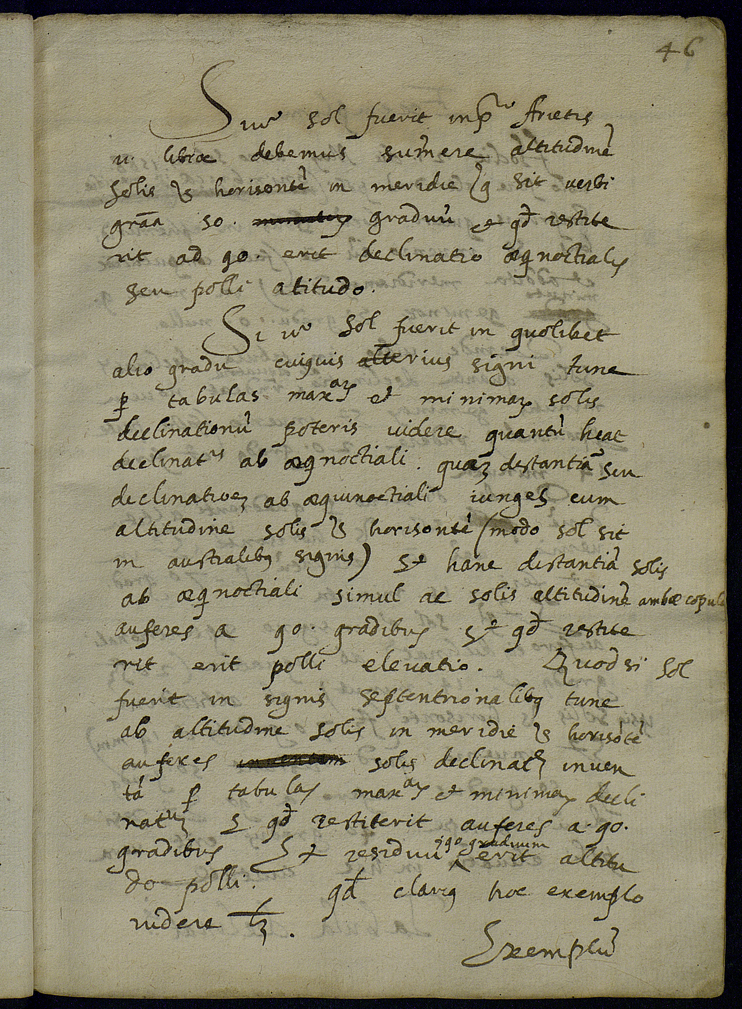 46
Sive sol fuerit in pro Arietis
v. librae debemus sumere altitudinē
solis horisontē in meridie q sit verbi
grãa 50. graduū et qđ restite
rit ad 90. erit declinatio æqnoctialis
seu polli atitudo.
Si vo sol fuerit in quolibet
alio gradu cuiquis alterius signi tunc
p tabulas maxas et minimas solis
declinationū poteris videre quantū heat
declinatus ab æqnoctiali. quaz distantiā seu
declinationez ab æquinoctiali iunges cum
altitudine solis horisontē (modo sol sit
in australibq signis) Et hanc distantiā solis
ab æqnoctiali simul ac solis altitudinē ambæ copula
auferes a 90. gradibus Et qđ restite
rit erit polli elevatio. Quod si sol
fuerit in signis septentrionalibq tunc
ab altitudine solis in meridie horisotē
auferes solis declinat inven
tā p tabulas maxas et minimas decli
nat qđ restiterit auferes a 90.
gradibus Et residuū graduum erit altitu
do polli. qđ clariq hoc exemplo
videre
Exemplū